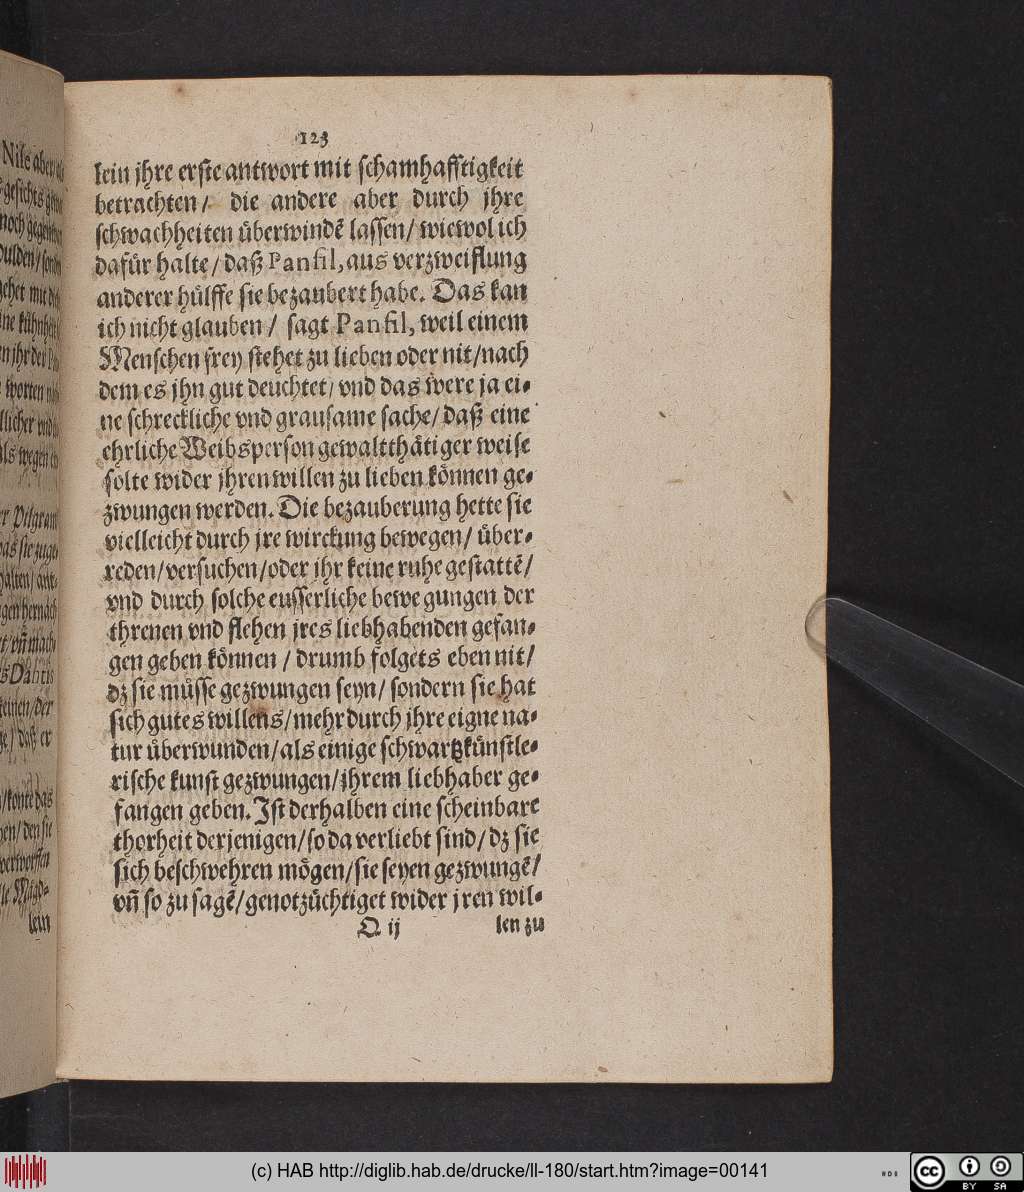 123
lein jhre erste antwort mit schamhafftigkeit
betrachten/ die andere aber durch jhre
schwachheiten überwindē lassen/ wiewol ich
dafür halte/ daß Panfil, aus verzweiflung
anderer hülffe sie bezaubert habe. Das kan
ich nicht glauben/ sagt Panfil, weil einem
Menschen frey stehet zu lieben oder nit/nach
dem es jhn gut deuchtet/ vnd das were ja ei-
ne schreckliche vnd grausame sache/ daß eine
ehrliche Weibsperson gewaltthätiger weise
solte wider jhren willen zu lieben können ge-
zwungen werden. Die bezauberung hette sie
vielleicht durch jre wirckung bewegen/ über-
reden/versuchen/oder jhr keine ruhe gestattē/
vnd durch solche eusserliche bewegungen der
threnen vnd flehen jres liebhabenden gefan-
gen geben können/ drumb folgets eben nit/
dz sie müsse gezwungen seyn/ sondern sie hat
sich gutes willens/mehr durch jhre eigne na-
tur überwunden/als einige schwartzkünstle-
rische kunst gezwungen/jhrem liebhaber ge-
fangen geben. Ist derhalben eine scheinbare
thorheit derjenigen/so da verliebt sind/ dz sie
sich beschwehren mögen/sie seyen gezwungē/
vn̄ so zu sagē/genotzüchtiget wider jren wil-
Q ij len zu
Nise aber
noch
dulden/
gehet mit
jhr der
worten
als wegen
Pilgram
halten/ ant-
vn̄ mach
Dahtis
keinen/der
daß er
/könte das
den sie
verworffen
Mägd-
lein
(c) HAB http://diglib.hab.de/drucke/ll-180/start.htm?image=00141
cc
BY SA